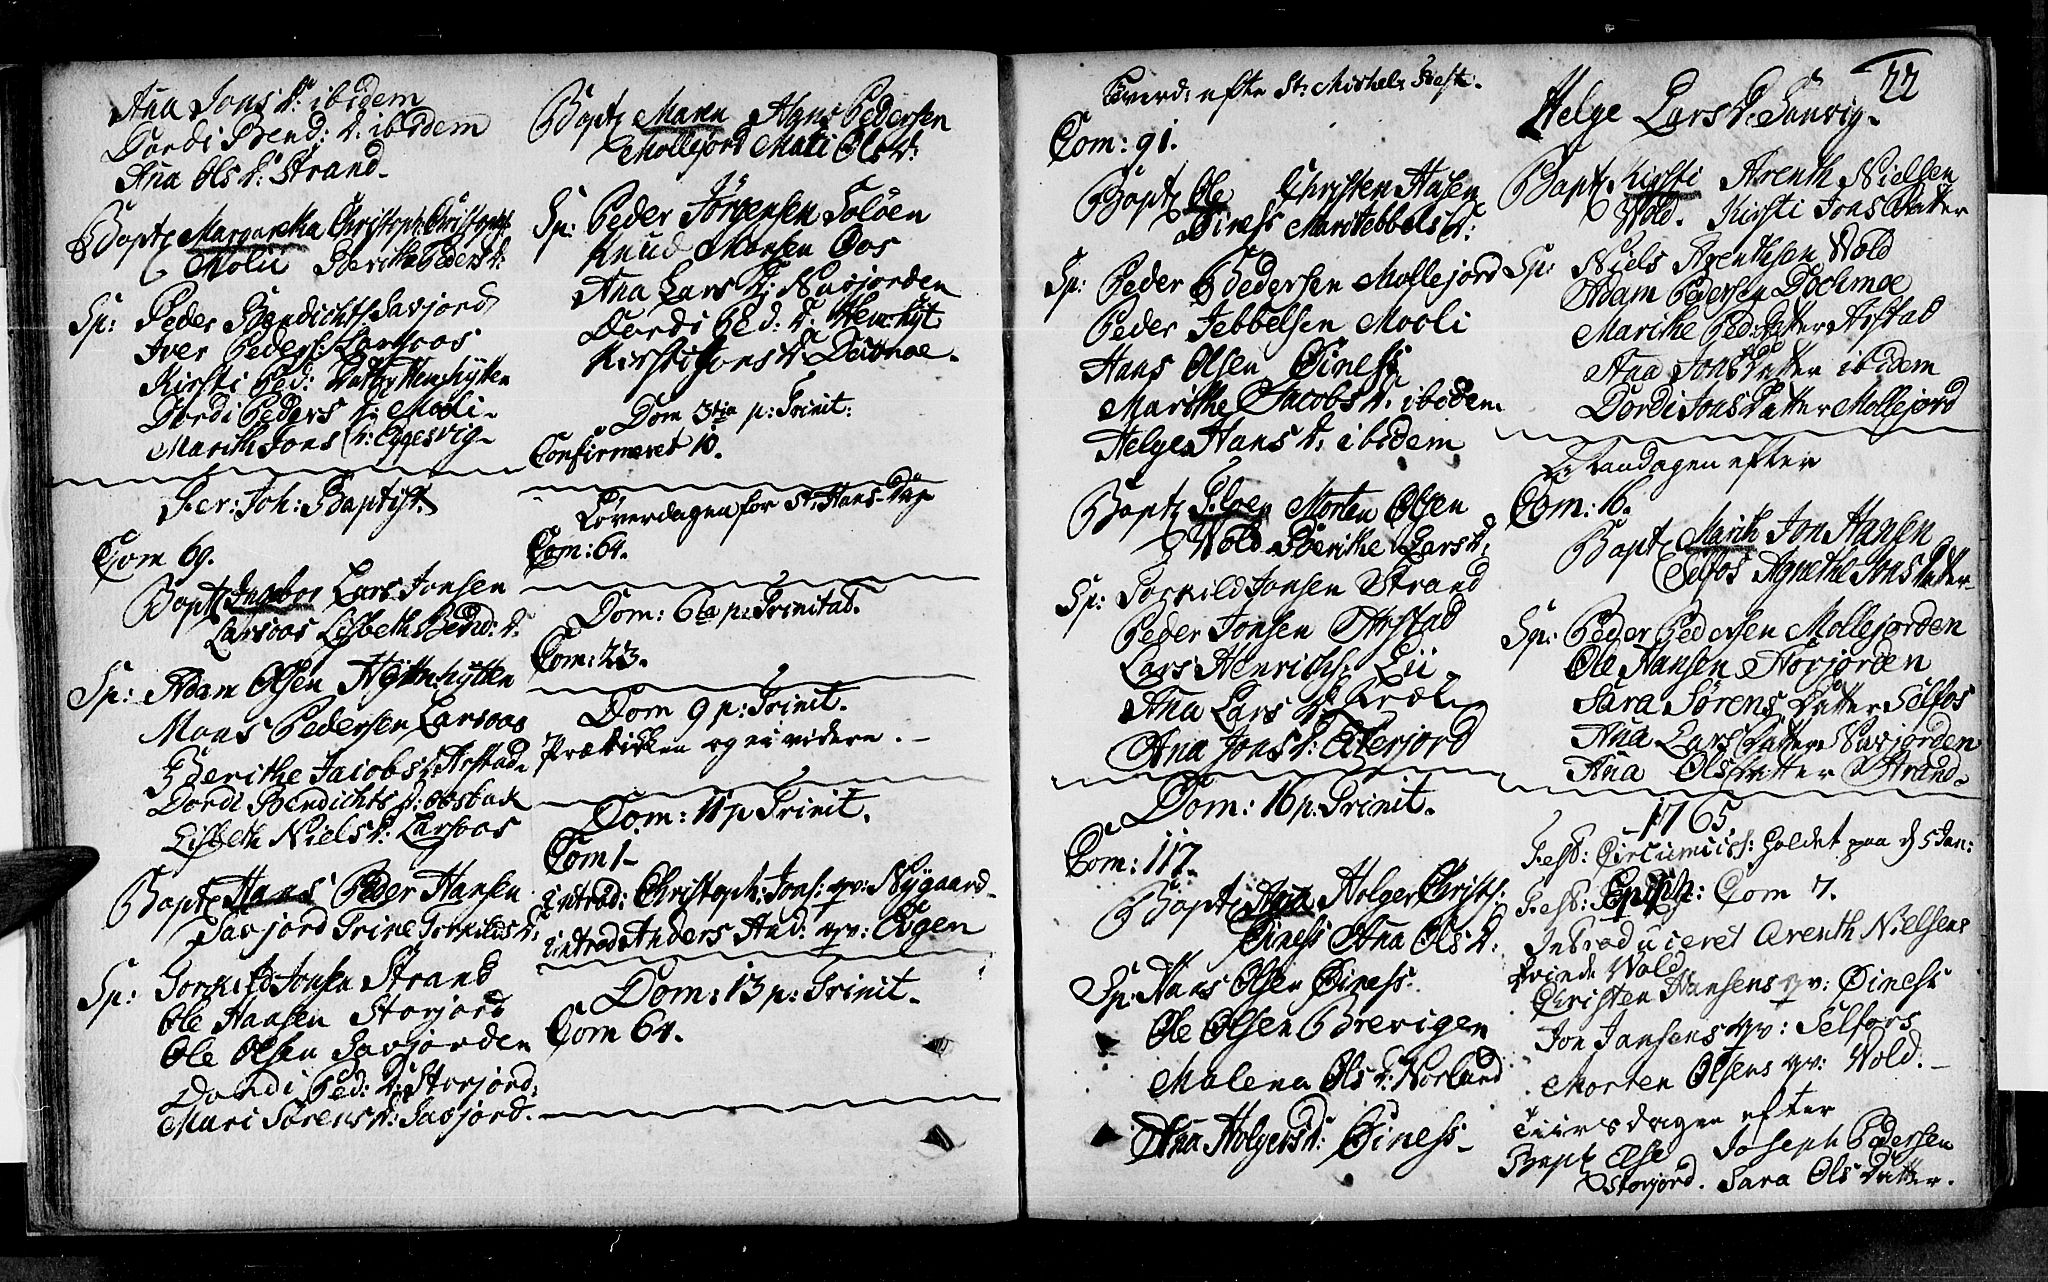 Ana Jons D: ibidem
Dordi Bend: D: ibidem
Ana Ols D: Strand.
Bapt Margaretha Christoph: Christophs:
Molii Berithe Peders D:
Sp: Peder Bendichts Savjord
Iver Peders: Larsoos
Kirsti Ped: Datt: Hemhytten
Dordi Peders D: Moli.
Marith Jons D: Eggesvig.
Fer: Joh: Baptist:
Com 69.
Bapt Ingebor Lars Jonsen
Larsoos Lisbeth Bend: D:
Sp: Adam Olsen Hemhytten
Mons Pedersen Larsoos
Berithe Jacobs D: Arstad
Dordi Bendichts D: obstad
Lisbeth Niels D: Larsoos
Bapt Hans Peder Hansen
Savjord Trine Torkilds D:
Sp: Torkild Jonsen Strand
Ole Hansen Storjord
Ole Olsen Savjorden
Dordi Ped: D: Storjord:
Mari Sørens D: Savjord.
Bapt Maren Hans Pedersen
Mollejord Mali Ols D:
Sp: Peder Jörgensen Soløen
Knud Monsen Oos
Ana Lars D: Navjorden
Dordi Ped: D: Hemhyt
Kirsti Jons D: Dochmoe.
Dom 3tia p: Trinit:
Confirmeret 10.
Løverdagen for St: Hans Dag
Com: 64.
Dom: 6ta p: Trinitat.
Com: 23.
Dom 9 p: Trinit.
Prædiken og ei videre. -
Dom: 11 p Trinit.
Com 1-
Introd: Christoph: Jons: qv: Nygaard.
Introd Anders And: qv: Evgen
Dom: 13 p: Trinit.
Com 64.
Tverd: efter St: Michels Fest:
Com: 91.
Bapt Ole Christen Hasen
Øiness Marit Ebbels D:
Sp: Peder Pedersen Mollejord
Peder Jebbelsen Mooli
Hans Olsen Øiness
Marithe Jacobs D: ibidem
Helge Hans D: ibidem
Bapt Eloen Morten Olsen
Wold Berithe Lars D:
Sp: Torkild Jonsen Strand
Peder Jonsen Arstad
Lars Henrichs: Lii
Ana Lars D:
Ana Jons D: Eterjord
Dom: 16 p: Trinit.
Com: 117.
Bapt Ana Holger Christs:
Øiness Ana Ols D:
Sp: Hans Olsen Øiness.
Ole Olsen Brevigen
Malena Ols D: Norland
Ana Holgers D: Øiness-
22
Helge Lars D: Sanvig.
Bapt Kirsti Arenth Nielsen
Wold. Kirsti Jons Datter
Sp: Niels Arenthsen Wold
Adam Pedersen Dochmoe
Marithe Ped: Datter Arstad
Ana Jons Datter ibidem
Dordi Jons Datter Mollejord
Mandagen efter
Com: 16.
Bapt Marith Jon Hansen
Selfos Agnethe Jons Datter
Sp: Peder Pedersen Mollejorden
Ole Hansen Storjorden
Sara Sørens Datter Selfos
Ana Lars Datter Navjorden
Ana Ols Datter Strand.
1765
Fest: Circumcis: holdet paa d 5 Jan:
Fest: Epiph: Com 7.
Introduceret Arenth Nielsens
qvinde Wold
Christen Hansens qv: Øiness
Jon Jansens qv: Selfors
Morten Olsens qv: Wold. -
Tiirsdagen efter
Bapt Else Joseph Pedersen
Storjord. Sara Ols Datter.